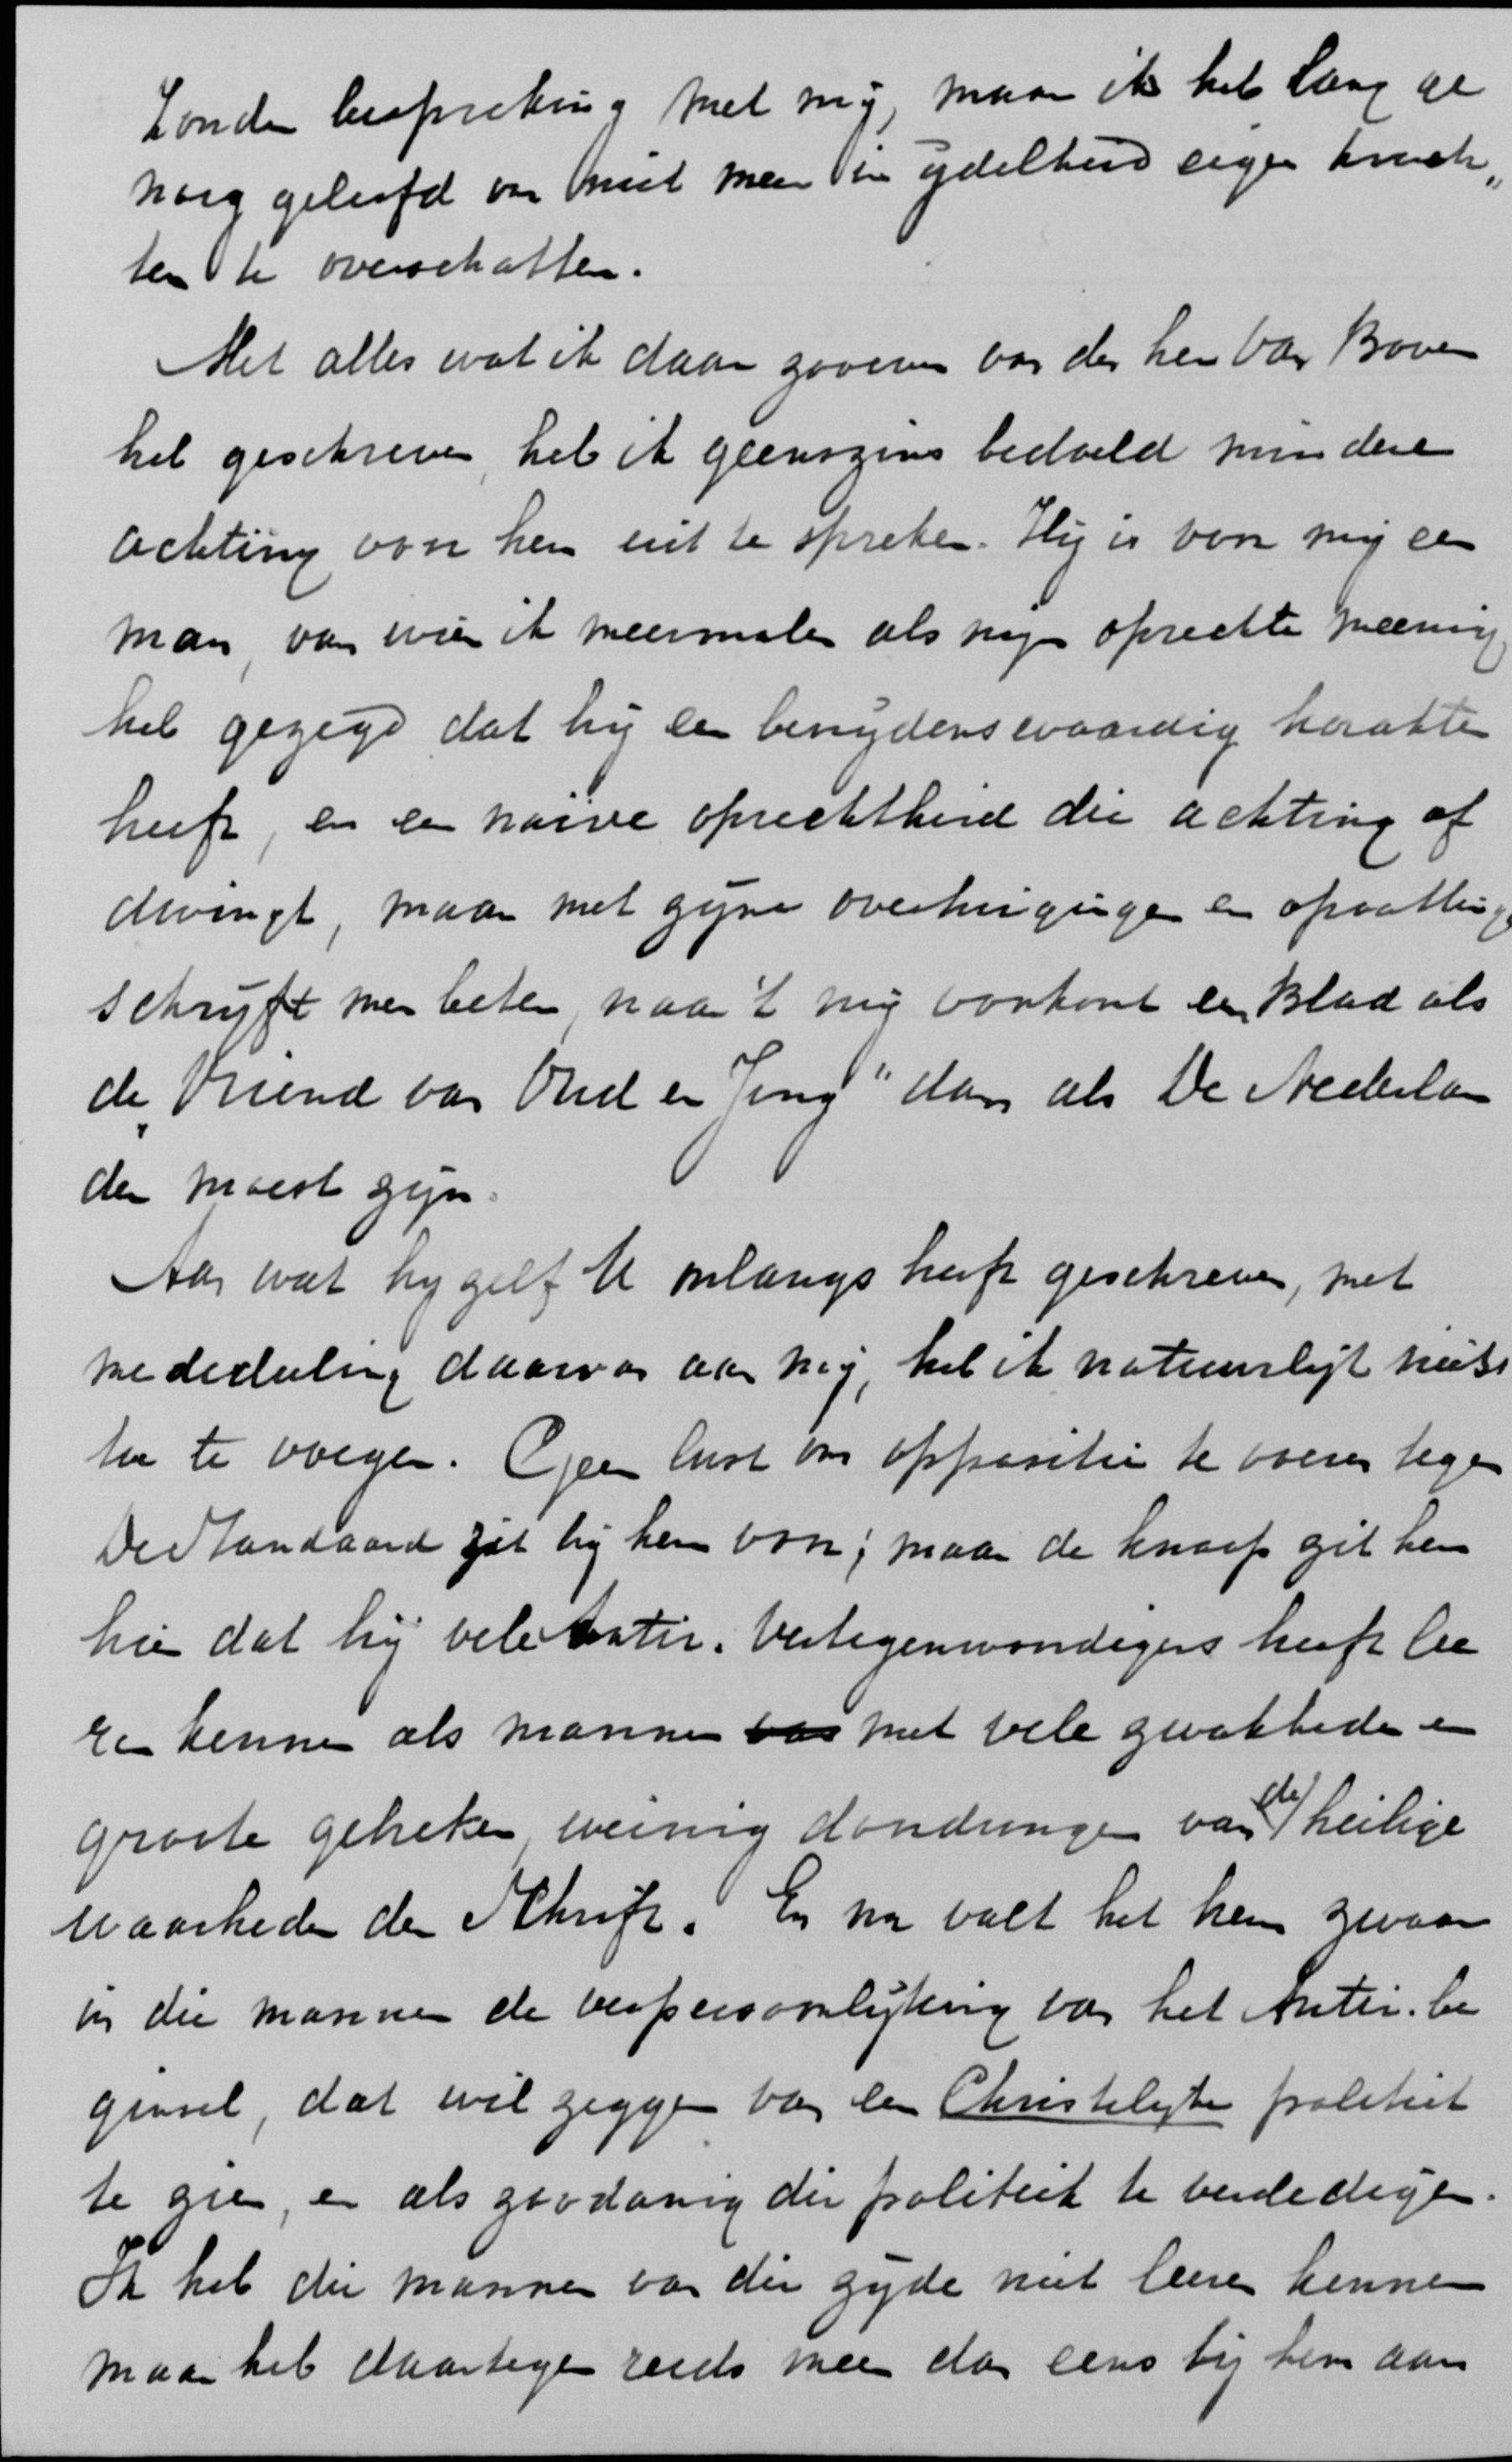 Zonder bespreking met mij, maar ik heb lang ge
noeg geleefd om niet meer in ijdelheid eigen krach„
ten te overschatten.
Met alles wat ik daar zooeven van den heer van Boven
heb geschreven, heb ik geenszins bedoeld mindere
achting voor hem uit te spreken. Hij is voor mij een
man, van wien ik meermalen als mijn oprechte meening
heb gezegd dat hij een benijdenswaardig karakter
heeft, en een naïve oprechtheid die achting af
dwingt, maar met zijne overtuigingen en opvattinge
schrijft men beter, naar 't mij voorkomt een Blad als
de „Vriend van Oud en Jong" dan als De Nederlan
der moest zijn.
Aan wat hij zelf U onlangs heeft geschreven, met
mededeeling daarvan aan mij, heb ik natuurlijk niets
toe te voegen. Geen lust om oppositie te voeren tegen
De Standaard zit bij hem voor; maar de knoop zit hem
hier dat hij vele Antir. Vertegenwoordigers heeft lee
ren kennen als mannen van met vele zwakheden en
groote gebreken, weinig doordrongen van de heilige
waarheden der Schrift. En nu valt het hem zwaar
in die mannen de verpersoonlijking van het Antir. be
ginsel, dat wil zeggen van een Christelijke politiek
te zien, en als zoodanig die politiek te verdedigen.
Ik heb die mannen van die zijde niet leeren kennen
maar heb daartegen reeds meer dan eens bij hem aan